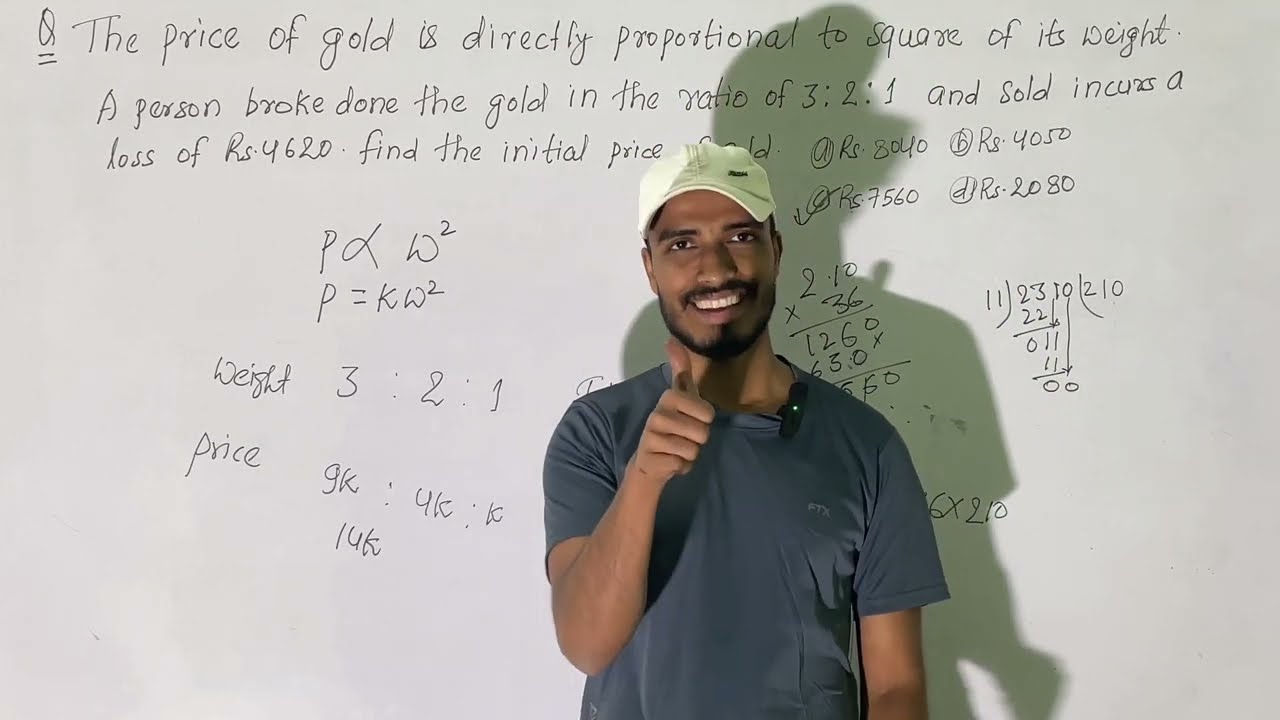 Q The price of gold is directly proportional to square of its weight.
A person broke done the gold in the ratio of 3:2:1 and sold incurs a
loss of Rs.4620. find the initial price
ⓐ Rs.8040 ⓑ Rs.4050
ⓒ Rs.7560 ⓓ Rs.2080
P ∝ w²
P = Kw²
Weight 3 : 2 : 1
Price
9K : 4K : K
14K
2.10
× 36
1260
630×
560
11)2310(210
22
011
11
00
6×210
FTX